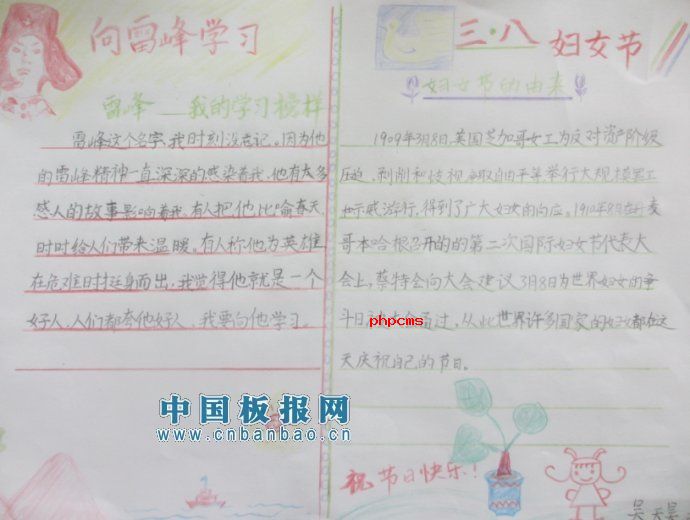 向雷峰学习
雷峰——我的学习榜样
雷峰这个名字,我时刻没忘记。因为他
的雷峰精神一直深深的感染着我,他有太多
感人的故事影响着我。有人把他比喻春天,
时时给人们带来温暖。有人称他为英雄
在危难时挺身而出,我觉得他就是一个
好人,人们都夸他好人,我要向他学习。
三·八 妇女节
妇女节的由来
1909年3月8日,美国芝加哥女工为反对资产阶级
压迫、剥削和歧视,取自由平等举行大规模罢工
和示威游行,得到了广大妇女的响应。1910年8月在丹麦
哥本哈根召开的的第二次国际妇女节代表大
会上,蔡特会向大会建议3月8日为世界妇女的争
斗日,大会通过,从此世界许多国家的妇女都在这
天庆祝自己的节日。
phpcms
中国板报网
www.cnbanbao.cn
祝节日快乐!
吴天昊